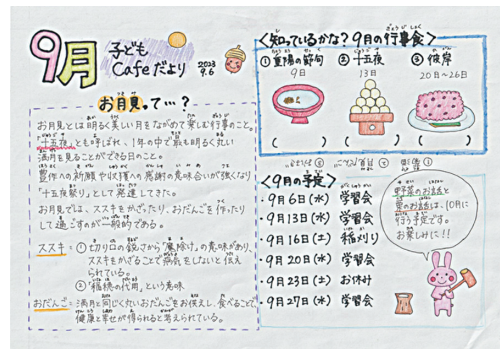 9月
子ども
Cafeだより
2023
9.6
お月見って…？
お月見とは明るく美しい月をながめて楽しむ行事のこと。
「十五夜」とも呼ばれ、1年の中で最も明るく丸い
満月を見ることができる日のこと。
豊作への祈願や収穫への感謝の意味合いが強くなり
「十五夜祭り」として発達してきた。
お月見では、ススキをかざったり、おだんごを作ったり
して過ごすのが一般的である。
ススキ＝①切り口の鋭さから「魔除け」の意味があり、
ススキをかざることで病気をしないと伝え
られている。
②「稲穂の代用」という意味
おだんご＝満月と同じく丸いおだんごをお供えし、食べることで、
健康と幸せが得られると考えられている。
<知っているかな？9月の行事食>
①重陽の節句
9日
②十五夜
13日
③彼岸
20日〜26日
( ) ( ) ( )
<9月の予定>
・9月6日(水) 学習会
・9月13日(水) 学習会
・9月16日(土) 稲刈り
・9月20日(水) 学習会
・9月23日(土) お休み
・9月27日(水) 学習会
野菜のお話と
お話は、10月に
行う予定です。
お楽しみに!!